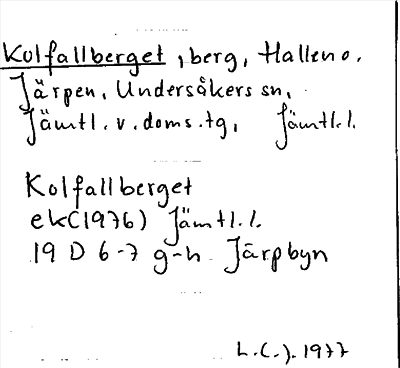 Kolfallberget, berg, Hallen o.
Järpen, Undersåkers sn,
Jämtl. v. doms. tg, Jämtl. l.
Kolfallberget
ek (1976) Jämtl. l.
19 D 6-7 g-h Järpbyn
L.C.J. 1977